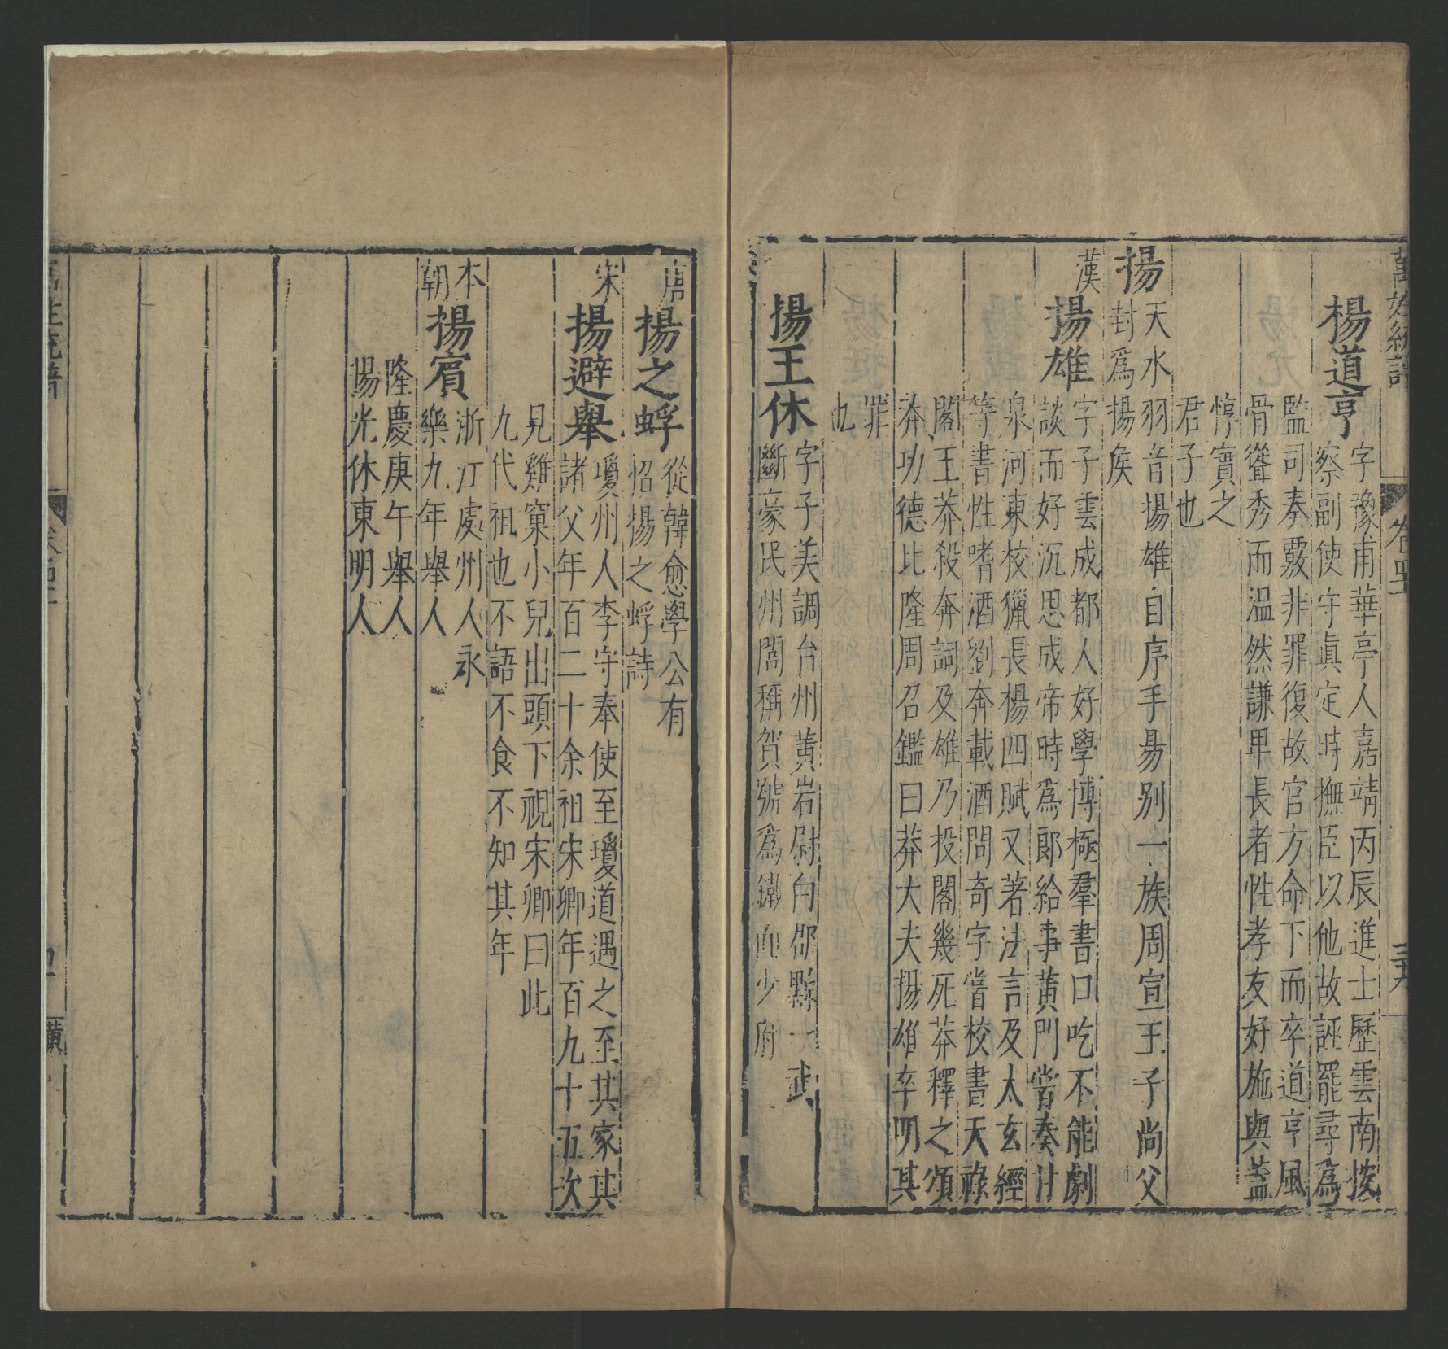 萬姓統譜
卷四十
三十八
楊道亨
字豫甫華亭人嘉靖丙辰進士歷雲南按
察副使守眞定時撫臣以他故誣罷尋為
監司奏覈非罪復故官方命下而卒道亨風
骨聳秀而溫然謙畢長者性孝友好施與蓋
惇實之
君子也
揚
天水羽音揚雄自序手昜别一族周宣王子尚父
封為揚侯
漢
揚雄
字子雲成都人好學博極羣書口吃不能劇
談而好沉思成帝時為郎給事黄門嘗奏甘
泉河東校獵長楊四賦又著法言及太玄經
等書性嗜酒劉奔載酒問奇字嘗校書天祿
閣王莽殺奔詞及雄乃投閣幾死莽釋之頌
莽功德比隆周召鑑曰莽大夫揚雄卒明其
罪
也
揚王休
字子美調台州黄岩尉向郡黥一武
斷豪民州閭稱賀號為鐵面少府
唐
揚之蜉
從韓愈學公有
招揚之蜉詩
宋
揚避舉
瓊州人李守奉使至瓊道遇之至其家其
諸父年百二十余祖宋卿年百九十五次
見雞窠小兒出頭下視宋卿曰此
九代祖也不語不食不知其年
本
朝
揚賔
浙江處州人永
樂九年舉人
隆慶庚午舉人
揚光休東明人